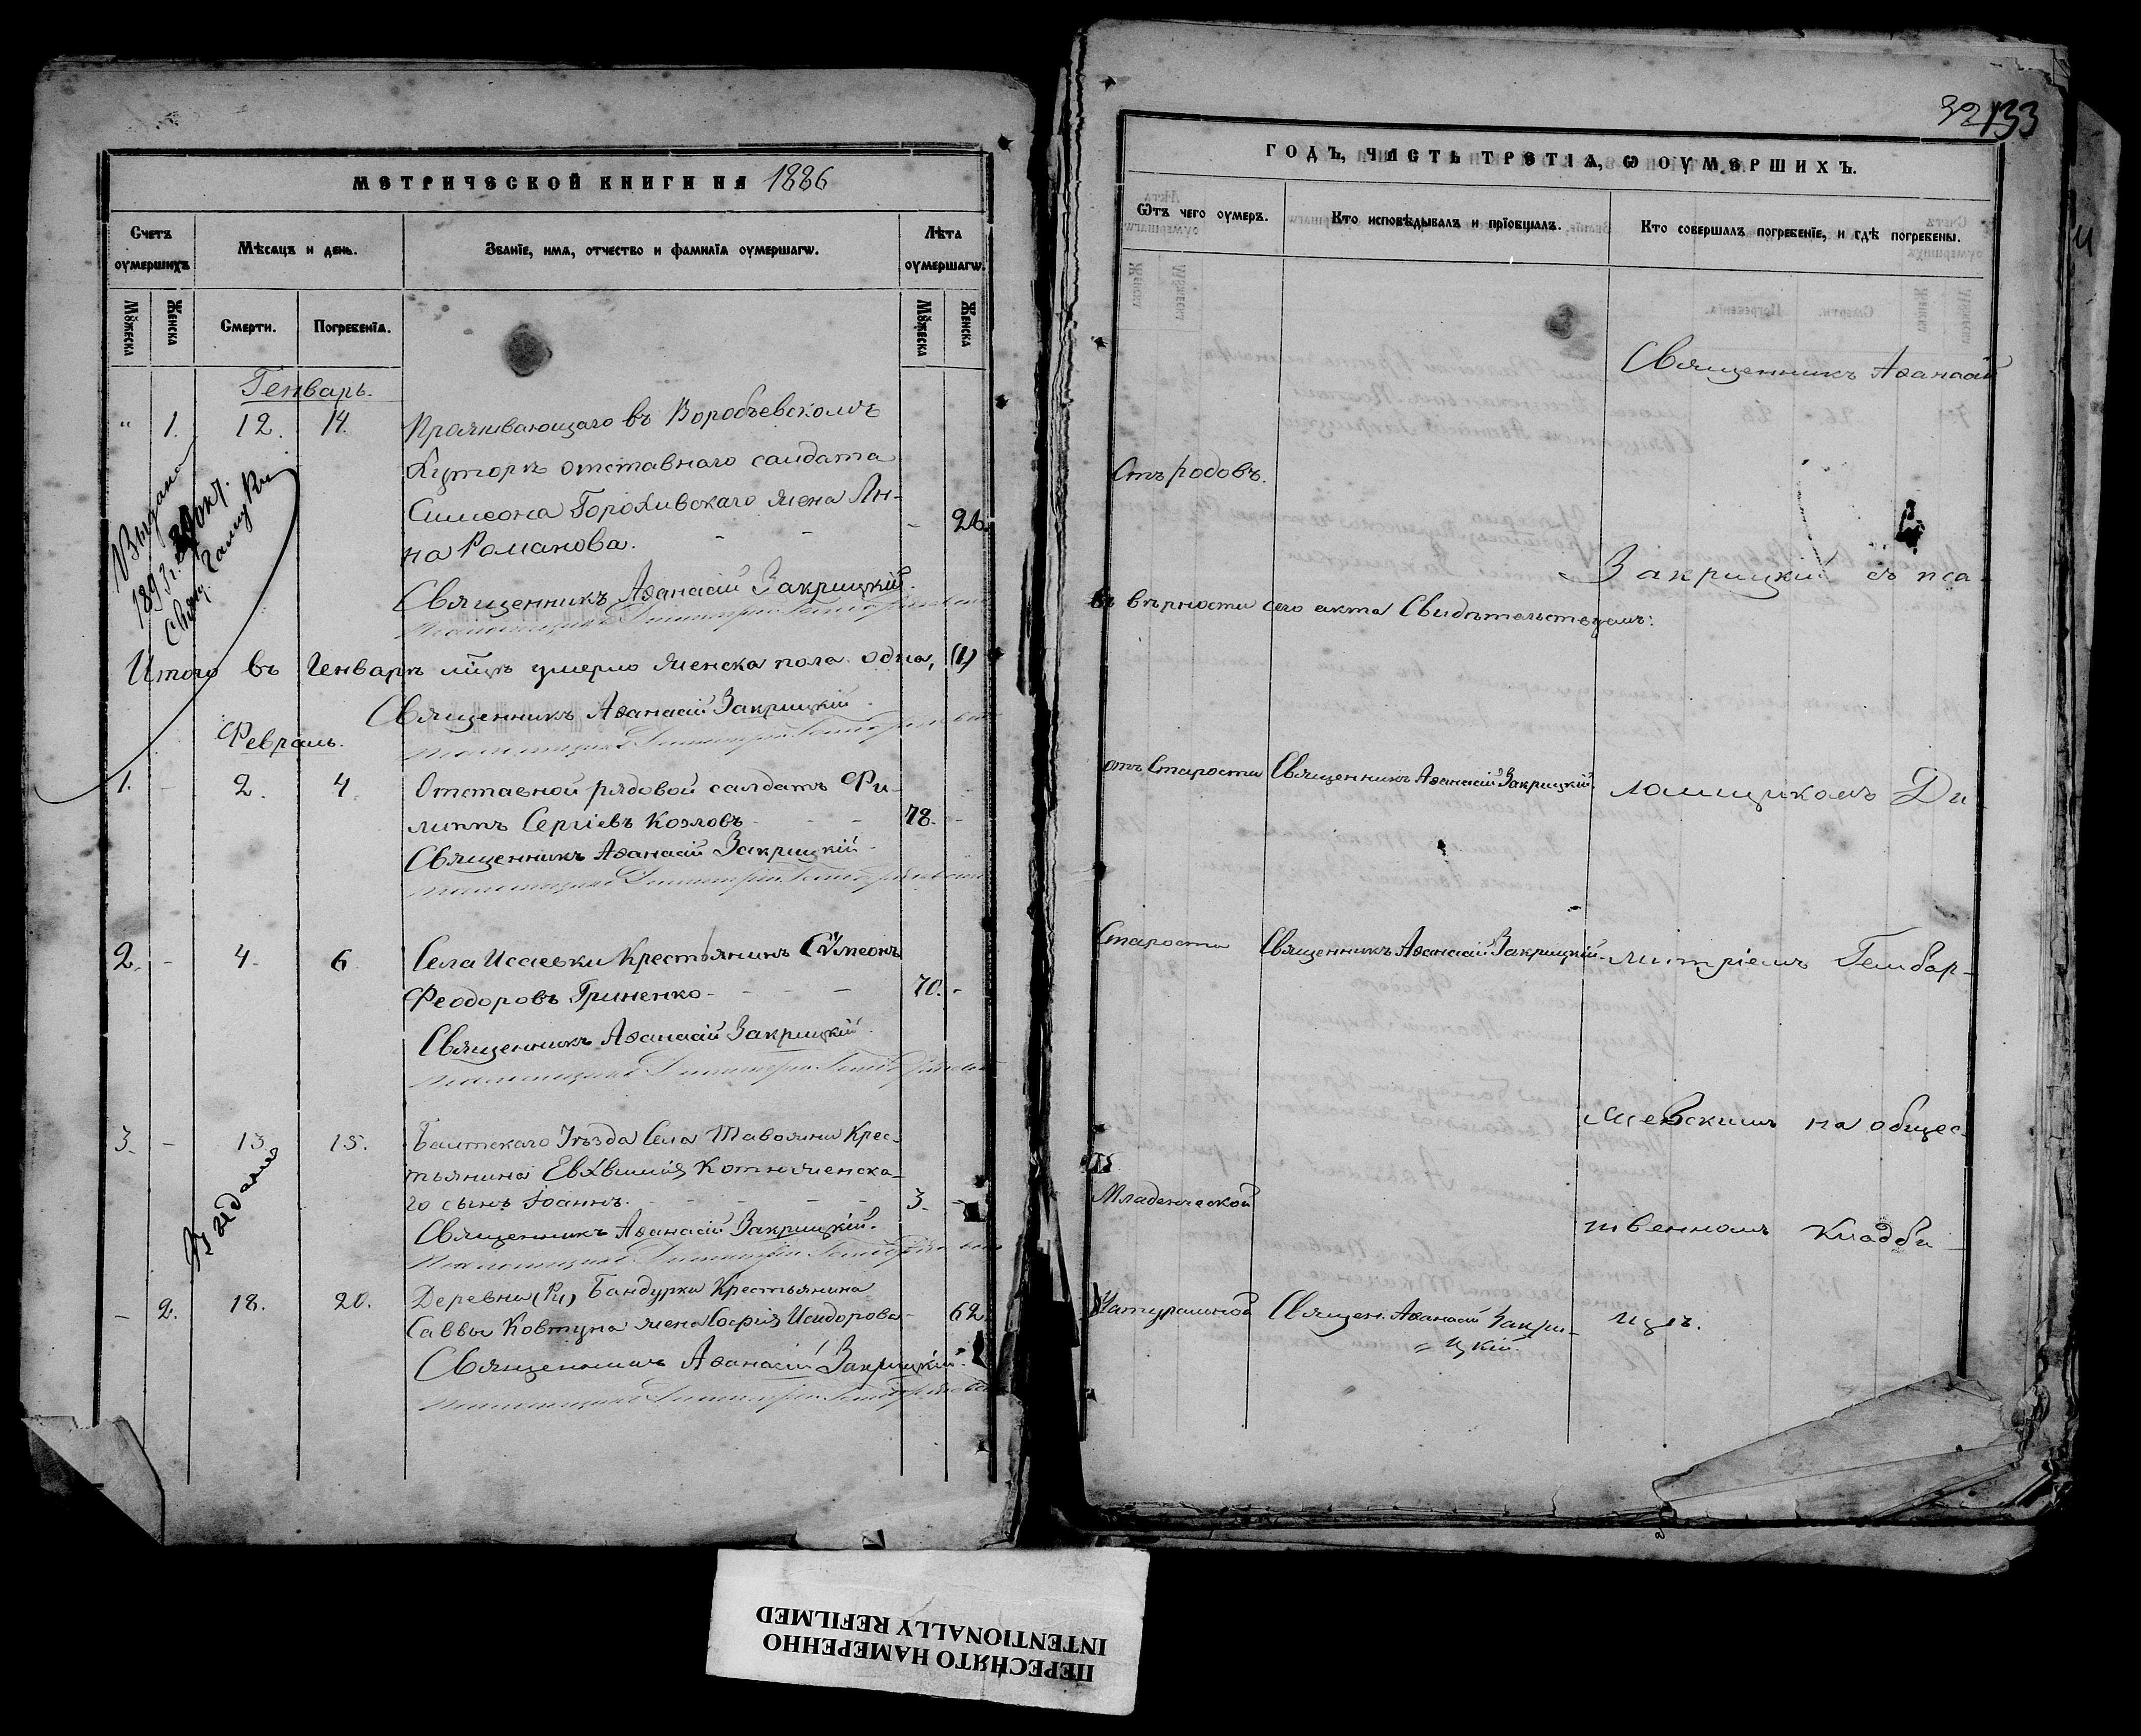 МЕТРИЧЕСКОЙ КНИГИ НА 1886
Счетъ оумершихъ
Мѣсяцъ и день.
Званїе, имѧ, отчество и фамилїѧ оумершагѡ.
Лѣта оумершагѡ.
Мꙋжеска
Женска
Смерти.
Погребенїѧ.
Мꙋжеска
Женска
Генварь.
" 1. 12. 14. Проживающаго въ Воробьевскомъ
Хуторѣ отставнаго солдата
Симеона Горохивскаго жена Ан-
на Романова. - - - 26.
Священникъ Аѳанасій Закрицкій.
Выдана
1893 г. окт.
Свящ.
Итого въ Генварѣ м͠цѣ умерло женска пола одна, (1)
Священникъ Аѳанасій Закрицкій.
Февраль.
1. - 2. 4. Отставной рядовой салдатъ Фи-
липпъ Сергіевъ Козловъ - - - 78. -
Священникъ Аѳанасій Закрицкій.
2. - 4. 6. Села Исаевки Крестьянинъ Симеонъ
Феодоровъ Гриненко - - - - 70. -
Священникъ Аѳанасій Закрицкій.
3. - 13. 15. Балтскаго Уѣзда Села Тавожни Крес-
тьянина Евѳимія Котнженска-
го сынъ Іоаннъ. - - - - 3. -
Священникъ Аѳанасій Закрицкій.
Выдана
- 2. 18. 20. Деревни Бандурки Крестьянина
Саввы Ковтуна жена Софія Исидорова - 62.
Священникъ Аѳанасій Закрицкій.
32 133
ГОДЪ, ЧАСТЬ ТРЕТІѦ, Ѡ ОУМЕРШИХЪ.
Ѿтъ чего оумеръ.
Кто исповѣдывалъ и прїобщалъ.
Кто совершалъ погребенїе, и гдѣ погребены.
Священникъ Аѳанасій
Отъ родовъ.
Закрицкій съ пса-
въ вѣрности сего акта Свидѣтельствуемъ:
отъ Старости Священникъ Аѳанасій Закрицкій. ломщикомъ Ди-
Старости Священникъ Аѳанасій Закрицкій. митріемъ Гембар-
жевскимъ на общес-
Младенческой
твенномъ Кладби-
Натуральной Священ. Аѳанасій Закри- щѣ.
= цкій.
ПЕРЕСНЯТО НАМЕРЕННО
INTENTIONALLY REFILMED